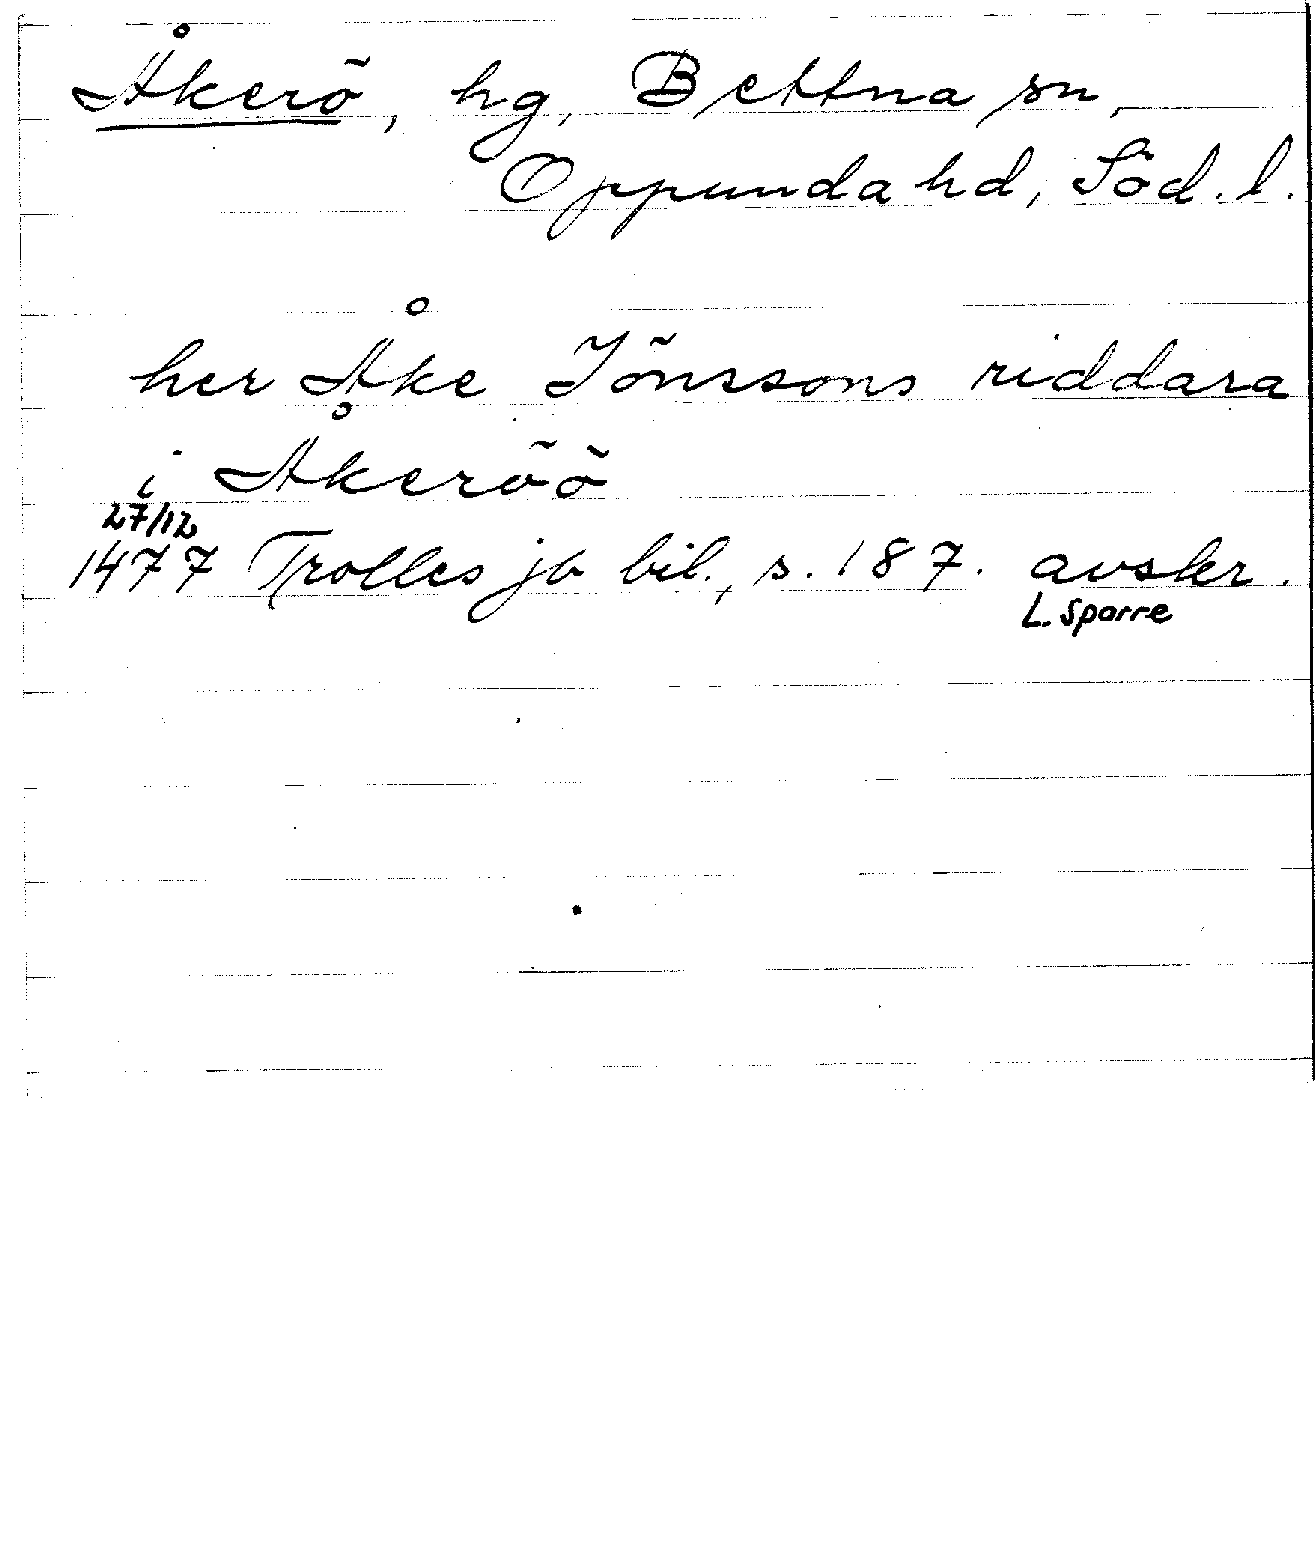 Åkerö, hg, Bettna sn,
Oppunda hd, Söd. l.
her Åke Jönssons riddara
i Åkeröö
27/12
1477 Trolles jb bil., s. 187. avskr.
L. Sparre